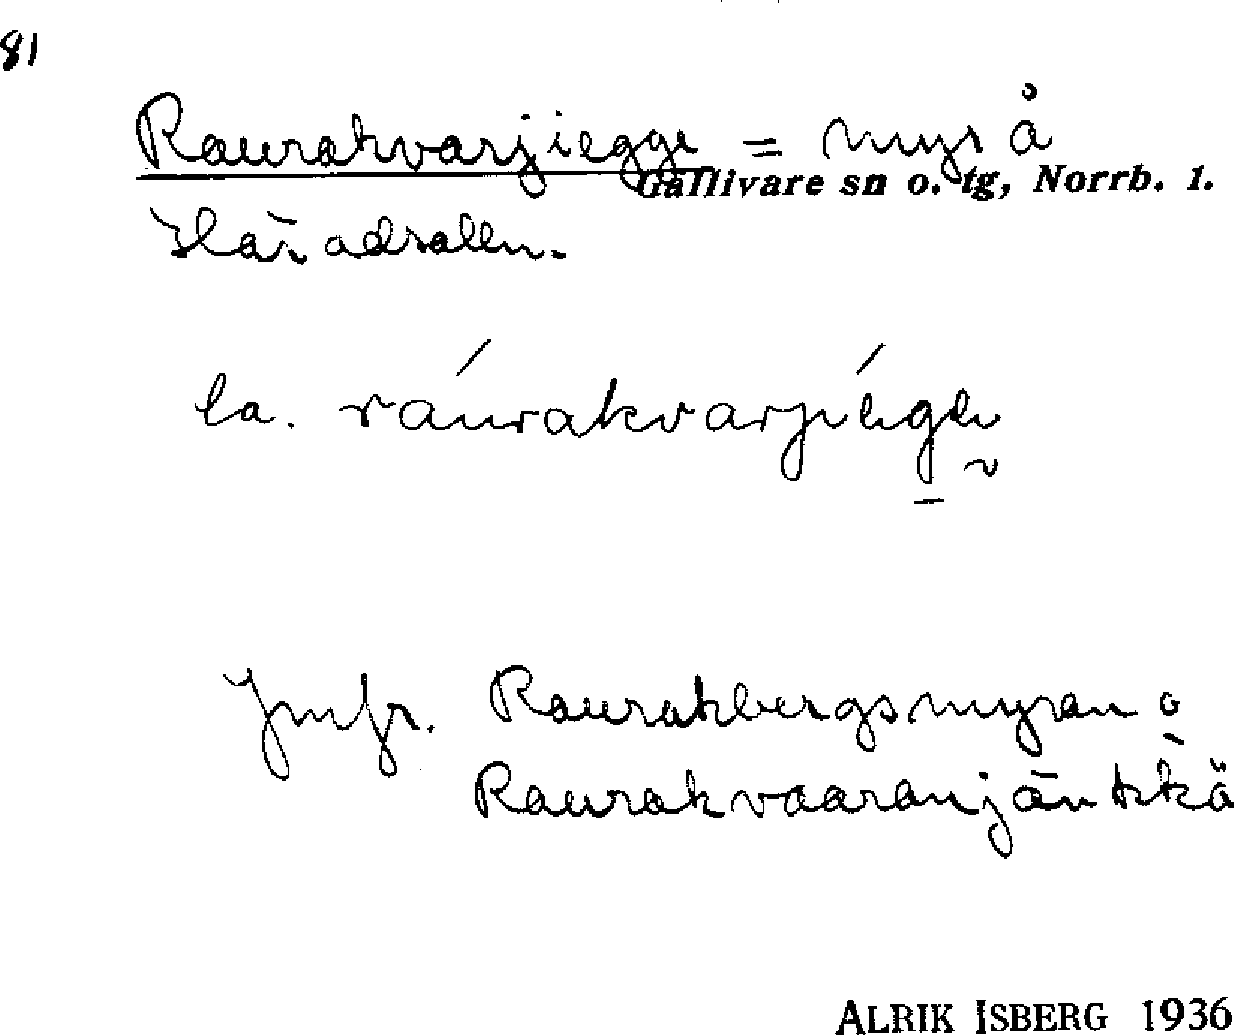 81
Raurakvarjiegge = myr å
Gällivare sn o. tg, Norrb. l.
Häradsallm.
la. ráurakvarji
Jmfr. Raurakbergsmyran o
Raurakvaaranjänkkä
ALRIK ISBERG 1936